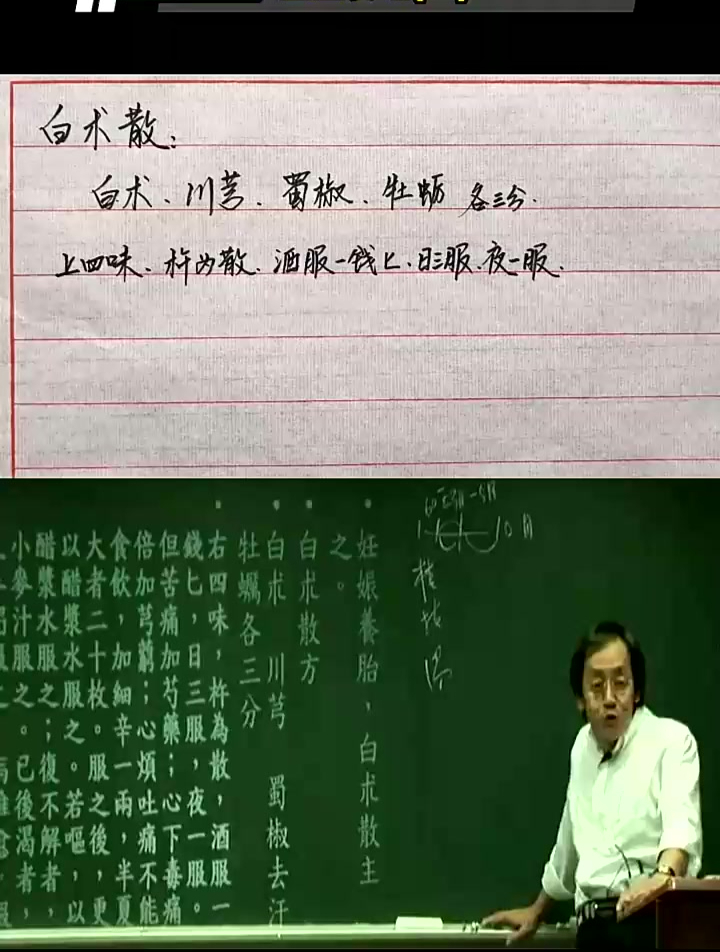 白术散：
白术、川芎、蜀椒、牡蛎 各三分.
上四味、杵为散、酒服一钱匕、日三服、夜一服.
妊娠養胎，白朮散主
之。
白朮散方
白朮 川芎 蜀椒去汗
牡蠣各三分
右四味，杵為散，酒服一
錢匕，日三服，夜一服。
但苦痛加芍藥；心下毒痛
倍加芎藭；心煩吐痛不能
食飲，加細辛一兩，半夏
大者二十枚。服之後，更
以醋漿水服之。若嘔，以
醋漿水服之；復不解者，
小麥汁服之。已後渴者，